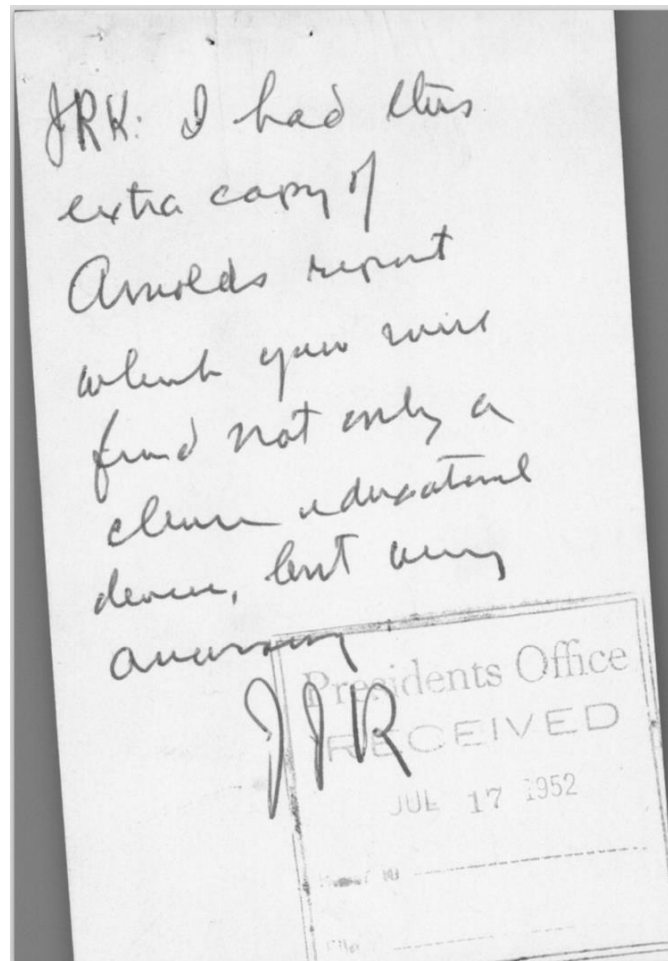 JRK: I had this
extra copy of
Arnolds report
which you will
find not only a
clever educational
device, but very
amusing
JJR
Presidents Office
RECEIVED
JUL 17 1952
File